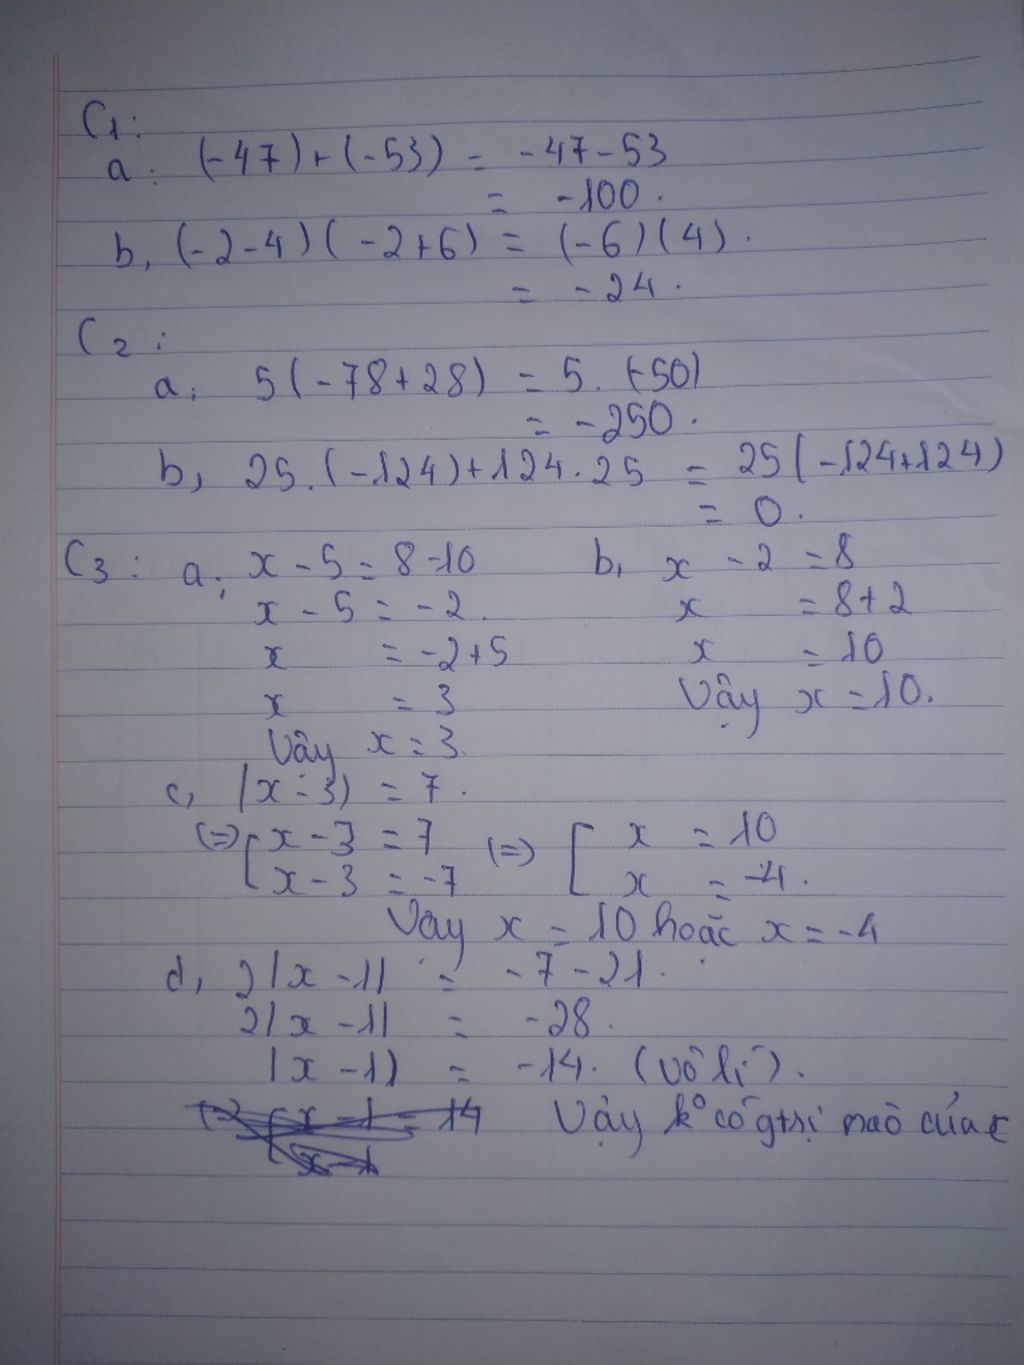 C1:
a. (-47)+(-53) = -47-53
= -100.
b, (-2-4)(-2+6) = (-6)(4).
= -24.
C2:
a, 5(-78+28) = 5.(-50)
= -250.
b, 25.(-124)+124.25 = 25(-124+124)
= 0.
C3: a, x-5=8-10
x-5=-2.
x =-2+5
x = 3
Vây x=3.
b, x-2=8
x =8+2
x =10
Vậy x=10.
c, |x-3| = 7.
(=) [x-3 = 7 (=) [x = 10
x-3 = -7 x = -4.
Vây x = 10 hoặc x=-4
d, 2|x-1| = -7-21.
2|x-1| = -28.
|x-1| = -14. (vô lí).
x-1=14 Vậy k° có gtrị nào của x
x-1